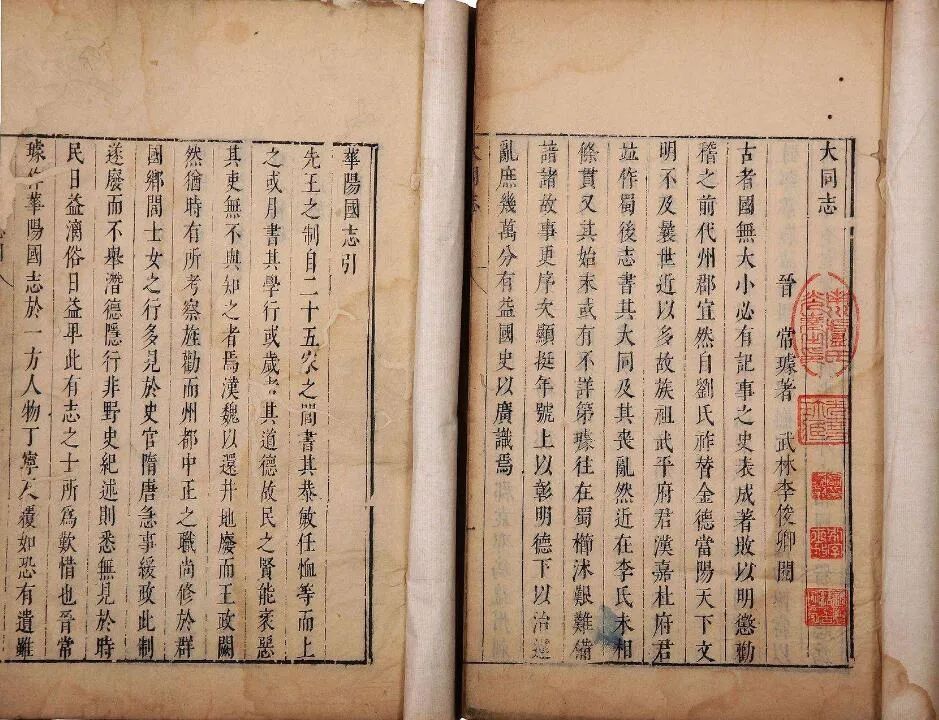 大同志
晉 常璩著 武林李俊卿閱
古者國無大小必有記事之史表成著敗以明懲勸
稽之前代州郡宜然自劉氏祚替金德當陽天下文
明不及曩世近以多故族祖武平府君漢嘉杜府君
竝作蜀後志書其大同及其喪亂然近在李氏未相
條貫又其始末或有不詳第璩往在蜀櫛沐艱難備
諳諸故事更序次顯挺年號上以彰明德下以治違
亂庶幾萬分有益國史以廣識焉
華陽國志引
先王之制自二十五家之閭書其恭敏任恤等而上
之或月書其學行或歲考其道德故民之賢能衺惡
其吏無不與知之者焉漢魏以還井地廢而王政闕
然猶時有所考察旌勸而州都中正之職尚修於群
國鄉閭士女之行多見於史官隋唐急事緩政此制
遂廢而不舉潛德隱行非野史紀述則悉無見於時
民日益漓俗日益卑此有志之士所爲歎惜也晉常
璩作華陽國志於一方人物丁寧反覆如恐有遺雖